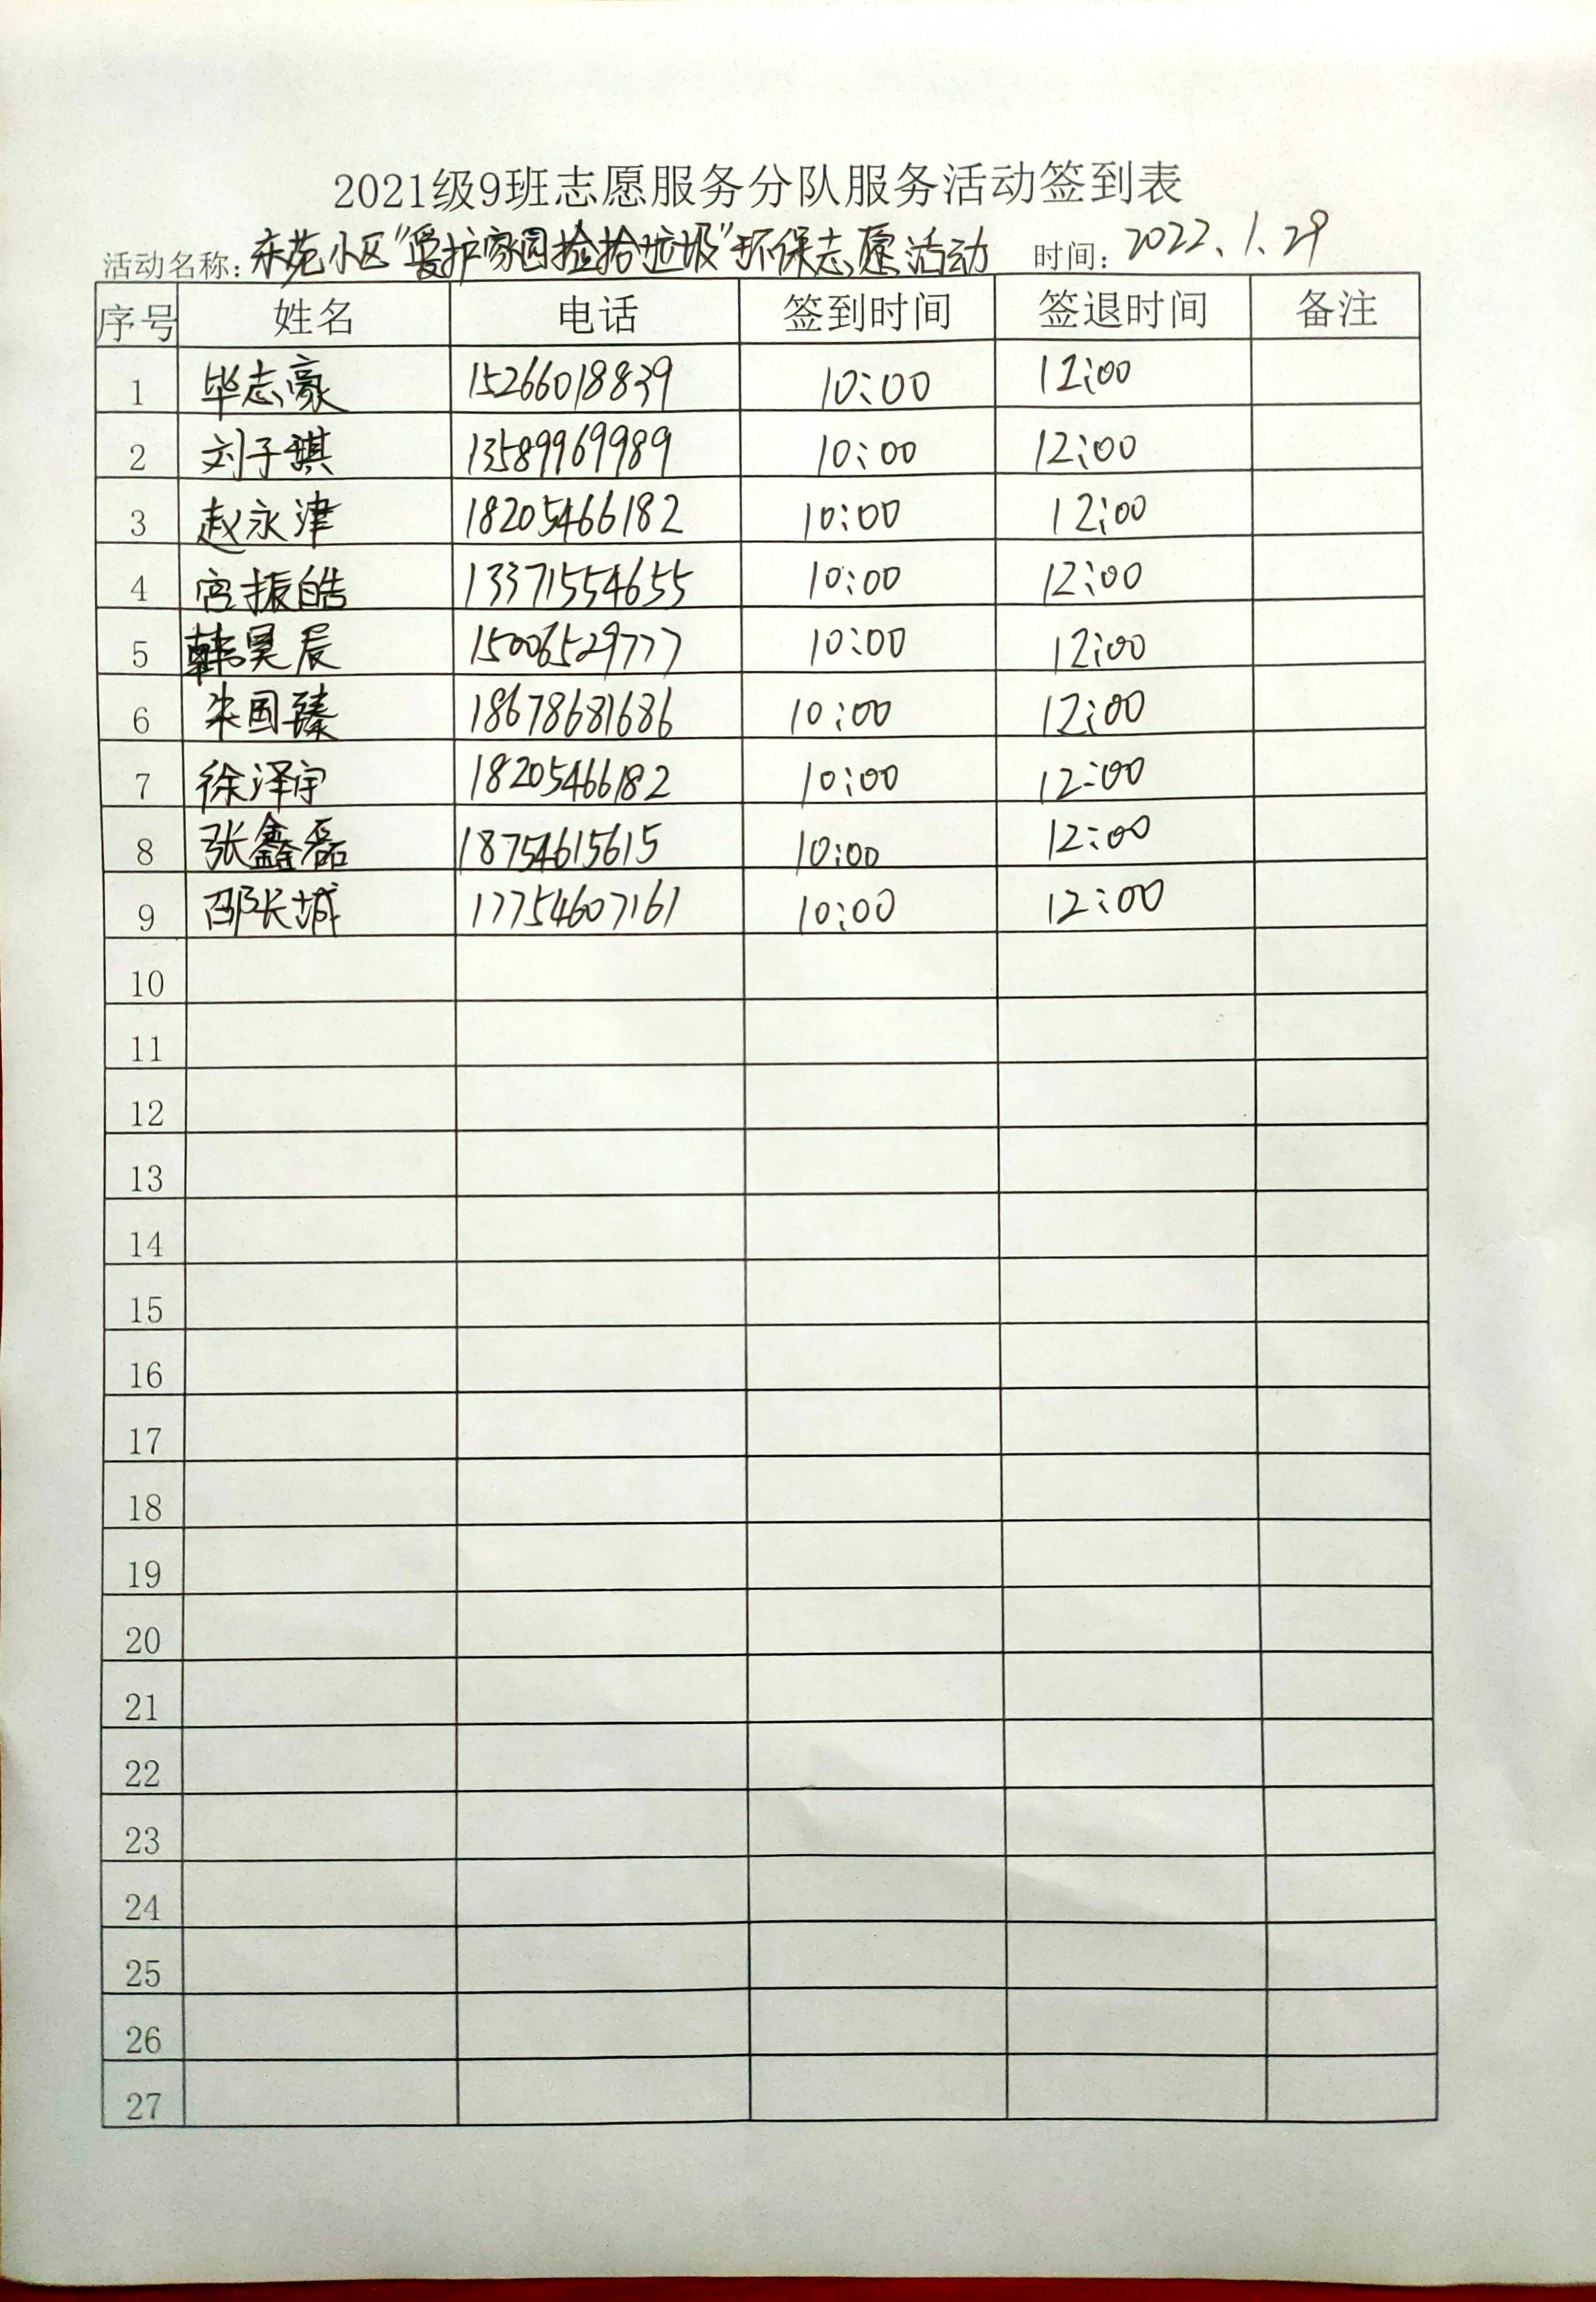 2021级9班志愿服务分队服务活动签到表
活动名称：东苑小区“爱护家园捡拾垃圾”环保志愿活动 时间：2022.1.29
序号 姓名 电话 签到时间 签退时间 备注
1 毕志豪 15266018839 10:00 12:00
2 刘子琪 13589969989 10:00 12:00
3 赵永津 18205466182 10:00 12:00
4 宫振皓 13371554655 10:00 12:00
5 韩昊辰 15006529777 10:00 12:00
6 朱国臻 18678681686 10:00 12:00
7 徐泽宇 18205466182 10:00 12:00
8 张鑫磊 18754615615 10:00 12:00
9 邵长城 17754607161 10:00 12:00
10
11
12
13
14
15
16
17
18
19
20
21
22
23
24
25
26
27